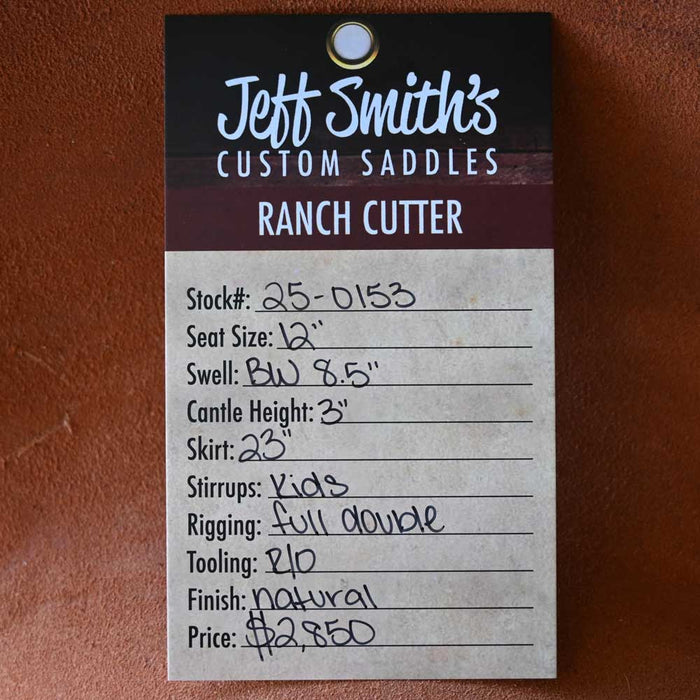 Jeff Smith's
CUSTOM SADDLES
RANCH CUTTER
Stock#: 25-0153
Seat Size: 12"
Swell: BW 8.5"
Cantle Height: 3"
Skirt: 23"
Stirrups: Kids
Rigging: full double
Tooling: R/O
Finish: natural
Price: $2,850